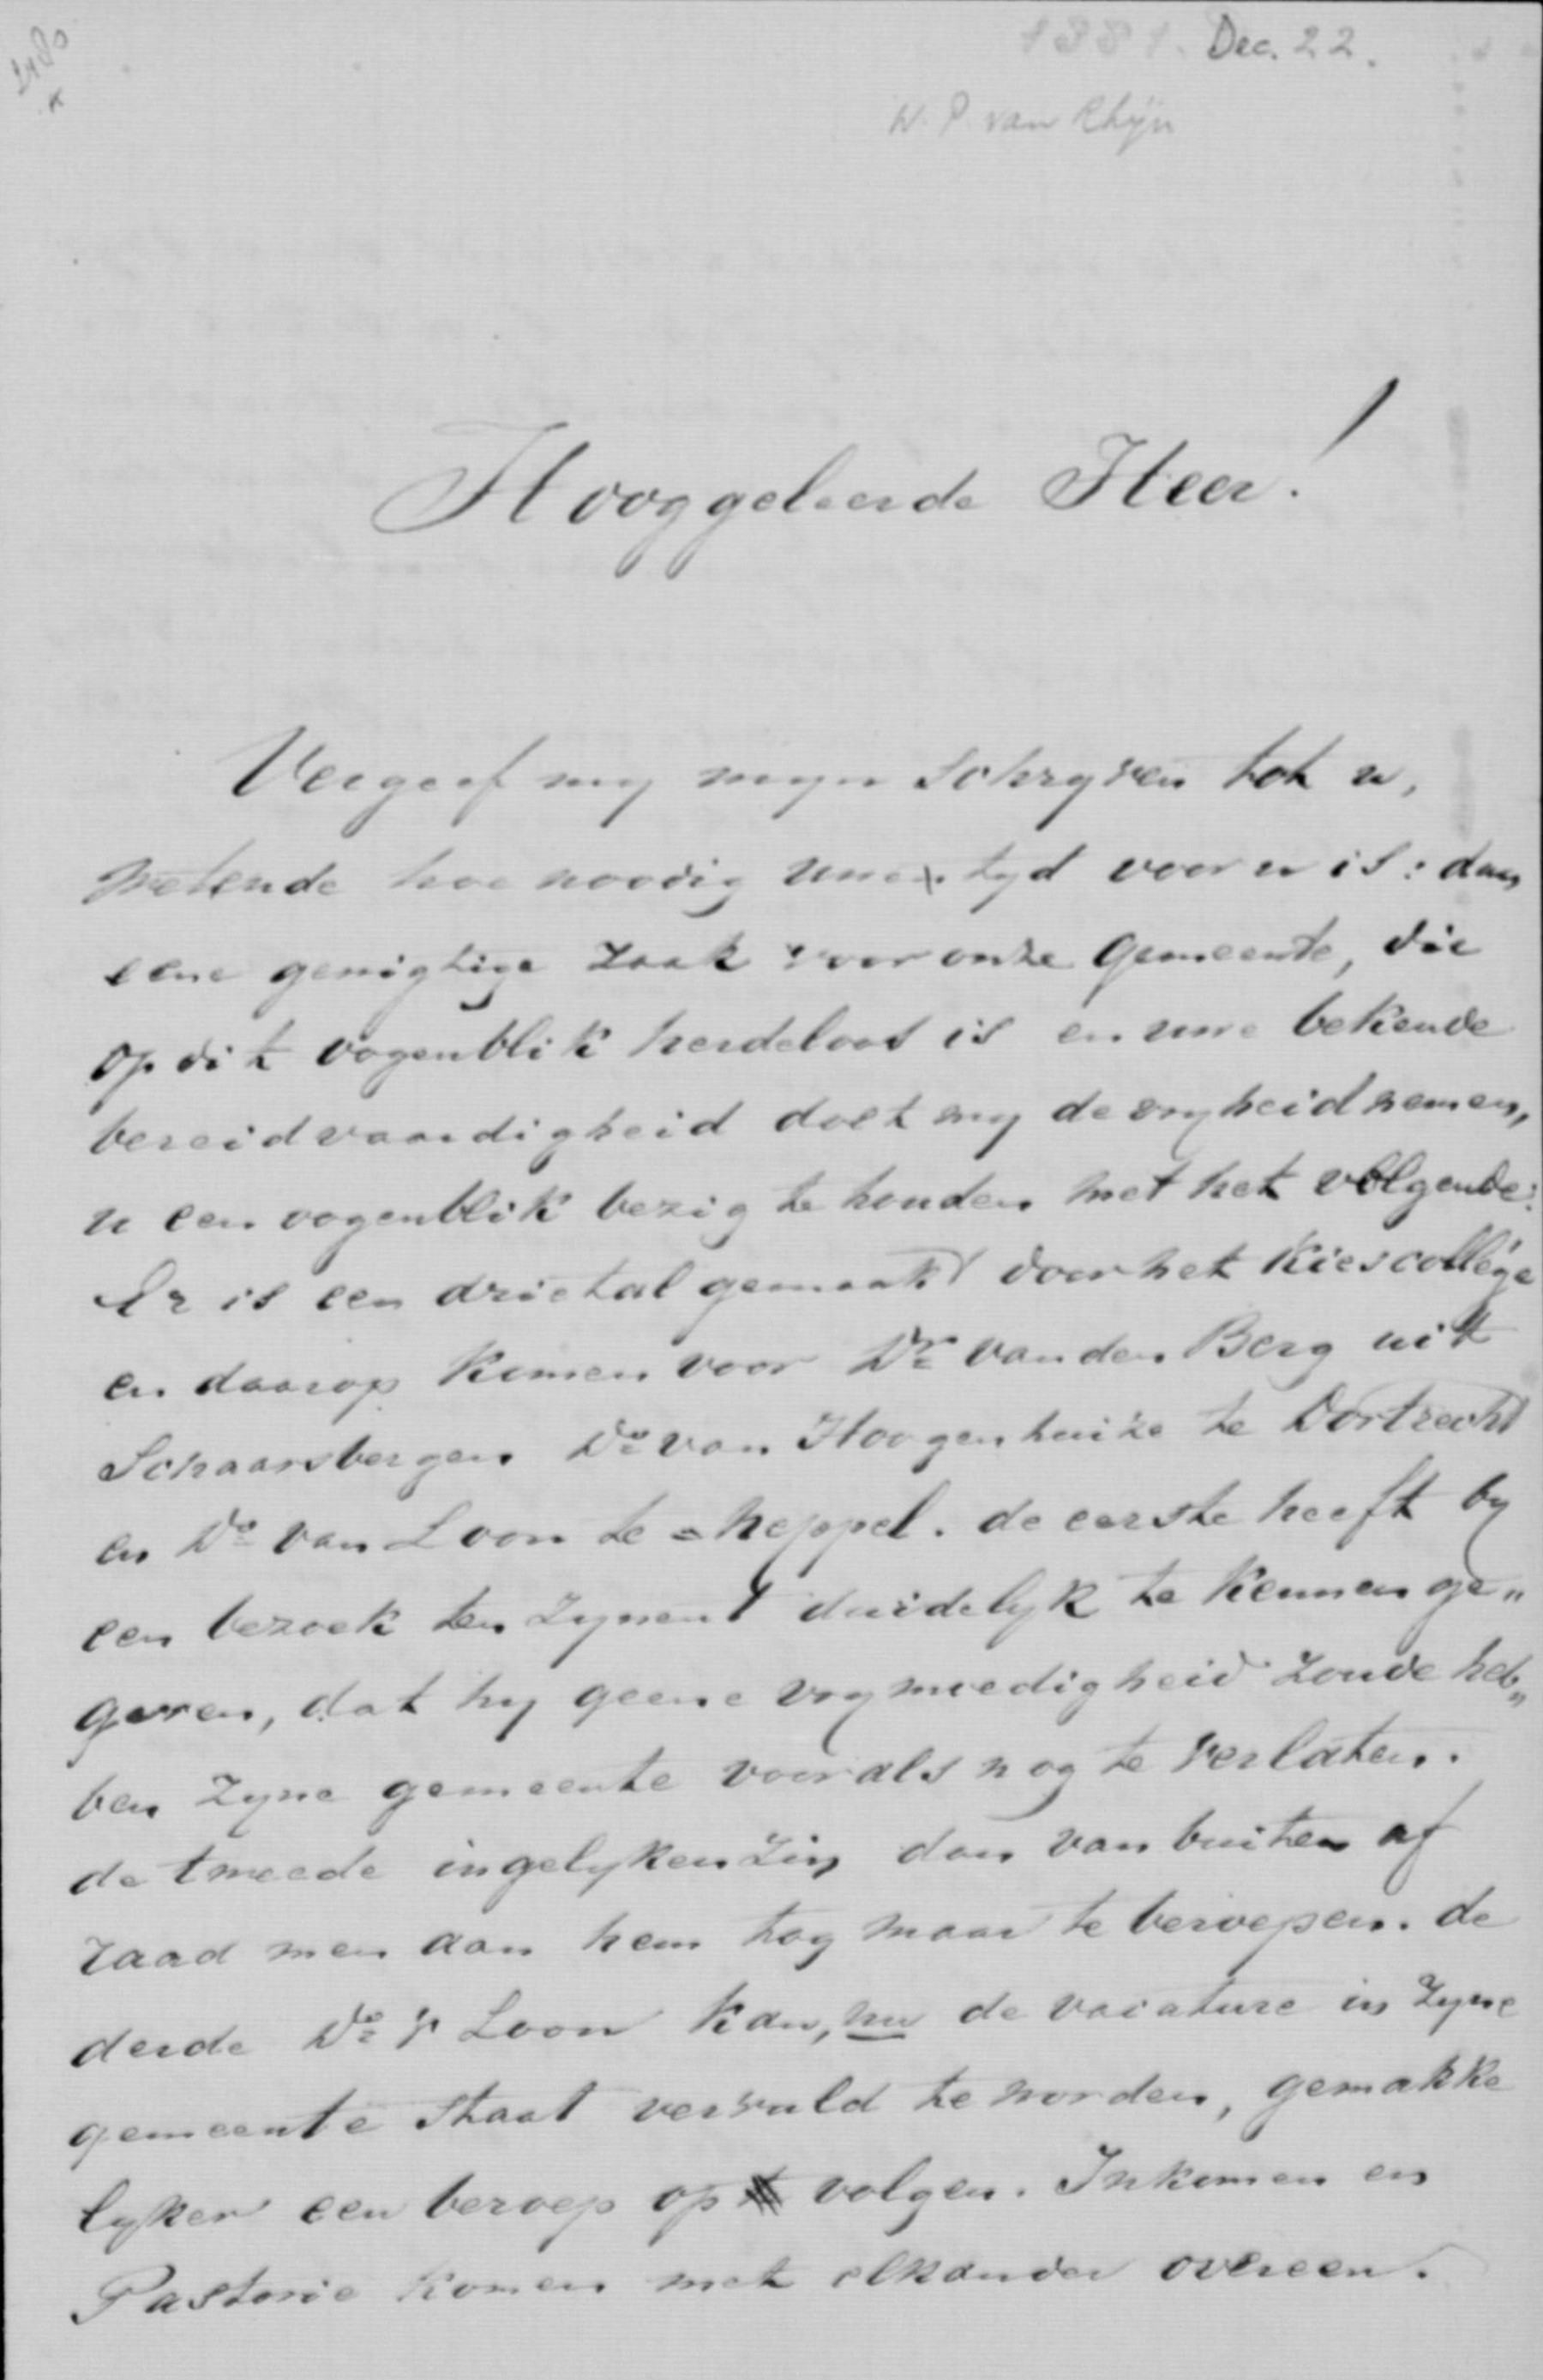 2480
x
1881. Dec. 22.
W. P. van Rhijn
Hooggeleerde Heer!
Vergeef my myn schryven tot u,
wetende hoe noodig uwe tyd voor u is: dan
eene gewigtige zaak voor onze Gemeente, die
op dit oogenblik herdeloos is en uwe bekende
bereidvaardigheid doet my de vryheid nemen,
u een oogenblik bezig te houden met het volgende:
Er is een drietal gemaakt door het Kiescollége
en daarop komen voor Dr van den Berg uit
Schaarsbergen Ds van Hoogenhuize te Dortrecht
en Ds van Loon te Meppel. de eerste heeft by
een bezoek ten zynent duidelyk te kennen ge„
geven, dat hy geene vrymoedigheid zoude heb„
ben zyne gemeente voor als nog te verlaten.
de tweede in gelyken zin dan van buiten af
raad men aan hem tog maar te beroepen. de
derde Ds v Loon kan, nu de vacature in zyne
gemeente staat vervuld te worden, gemakke
lyker een beroep op volgen. Inkomen en
Pastorie komen met elkander overeen.